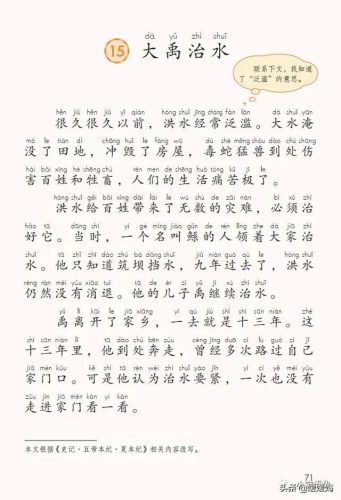 dà yǔ zhì shuǐ
15 大禹治水
联系下文，我知道
了“泛滥”的意思。
hěn jiǔ hěn jiǔ yǐ qián hóng shuǐ jīng cháng fàn làn dà shuǐ yān
很久很久以前，洪水经常泛滥。大水淹
mò le tián dì chōng huǐ le fáng wū dú shé měng shòu dào chù shāng
没了田地，冲毁了房屋，毒蛇猛兽到处伤
hài bǎi xìng hé shēng chù rén men de shēng huó tòng kǔ jí le
害百姓和牲畜，人们的生活痛苦极了。
hóng shuǐ gěi bǎi xìng dài lái le wú shù de zāi nàn bì xū zhì
洪水给百姓带来了无数的灾难，必须治
hǎo tā dāng shí yí gè míng jiào gǔn de rén lǐng zhe dà jiā zhì
好它。当时，一个名叫鲧的人领着大家治
shuǐ tā zhǐ zhī dào zhù bà dǎng shuǐ jiǔ nián guò qù le hóng shuǐ
水。他只知道筑坝挡水，九年过去了，洪水
réng rán méi yǒu xiāo tuì tā de ér zi yǔ jì xù zhì shuǐ
仍然没有消退。他的儿子禹继续治水。
yǔ lí kāi le jiā xiāng yí qù jiù shì shí sān nián zhè
禹离开了家乡，一去就是十三年。这
shí sān nián lǐ tā dào chù bēn zǒu céng jīng duō cì lù guò zì jǐ
十三年里，他到处奔走，曾经多次路过自己
jiā mén kǒu kě shì tā rèn wéi zhì shuǐ yào jǐn yí cì yě méi yǒu
家门口。可是他认为治水要紧，一次也没有
zǒu jìn jiā mén kàn yí kàn
走进家门看一看。
本文根据《史记·五帝本纪·夏本纪》相关内容改写。
71
头条